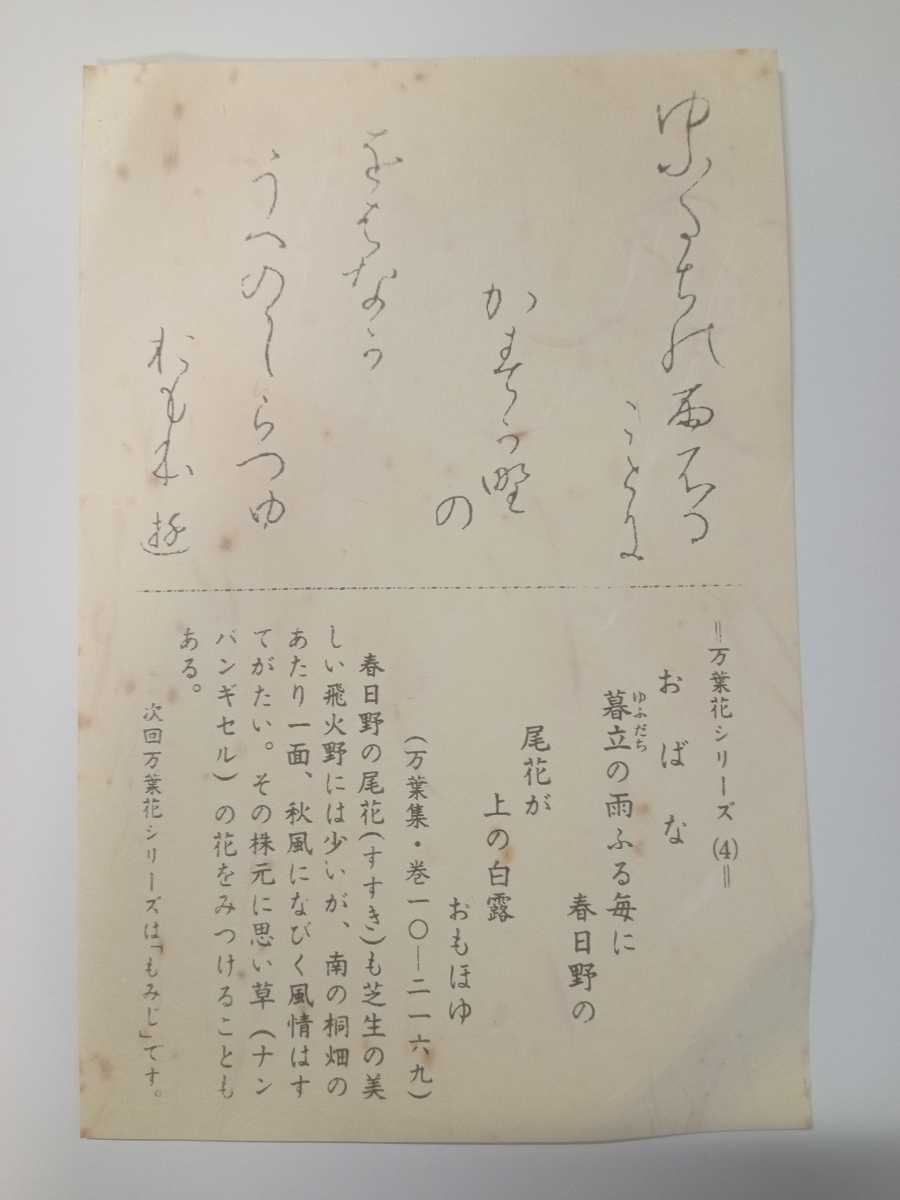 ゆふたちの雨ふる
ことに
かすか野
の
をはなか
うへのしらつゆ
おもほ遊
＝万葉花シリーズ(4)＝
おばな
暮立の雨ふる毎に
ゆふだち
春日野の
尾花が
上の白露
おもほゆ
(万葉集・巻一〇—二一六九)
春日野の尾花(すすき)も芝生の美
しい飛火野には少いが、南の桐畑の
あたり一面、秋風になびく風情はす
てがたい。その株元に思い草(ナン
バンギセル)の花をみつけることも
ある。
次回万葉花シリーズは「もみじ」です。